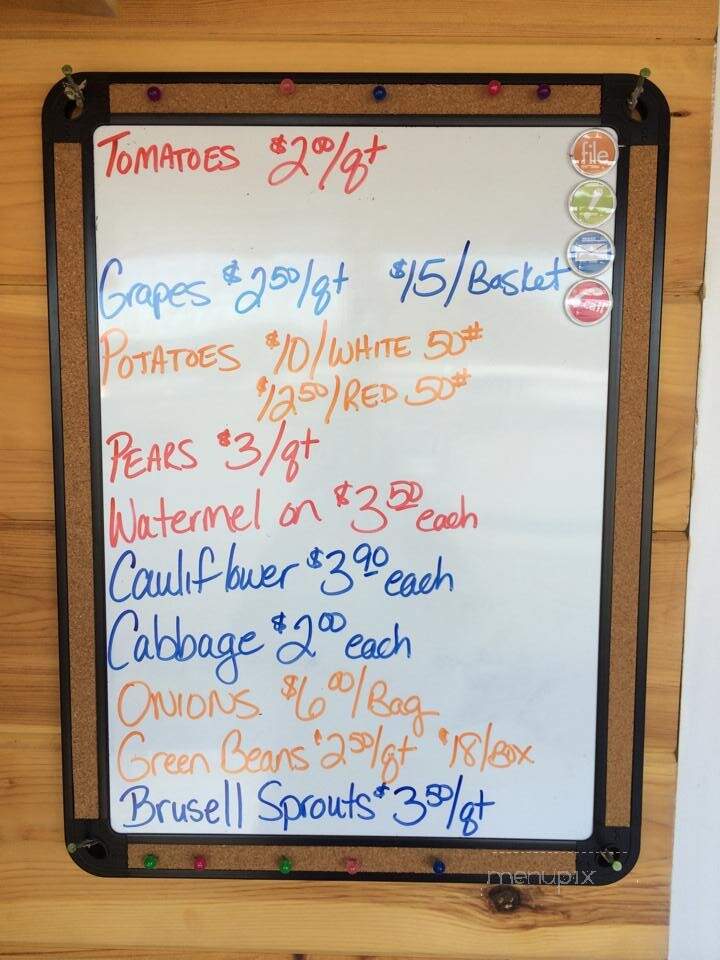 TOMATOES $2.00/qt
file
Grapes $2.50/qt $15/Basket
call
POTATOES $10/WHITE 50#
$12.50/RED 50#
PEARS $3/qt
Watermelon $3.50 each
Cauliflower $3.90 each
Cabbage $2.00 each
ONIONS $6.00/Bag
Green Beans $2.50/qt $18/BOX
Brusell Sprouts $3.50/qt
menupix